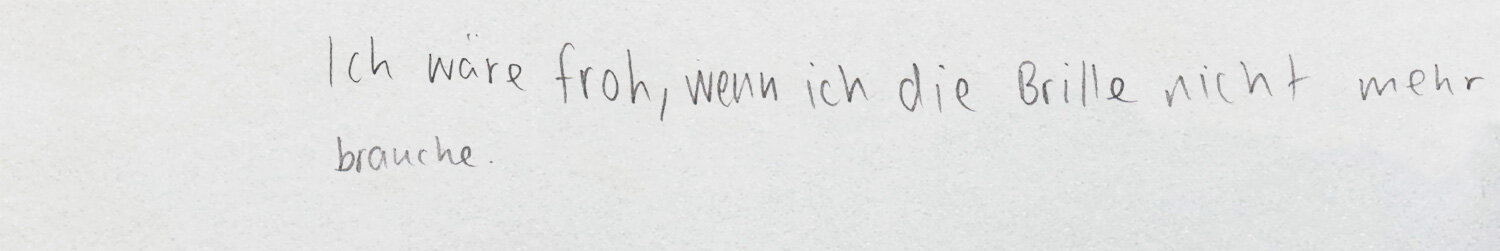 Ich wäre froh, wenn ich die Brille nicht mehr
brauche.